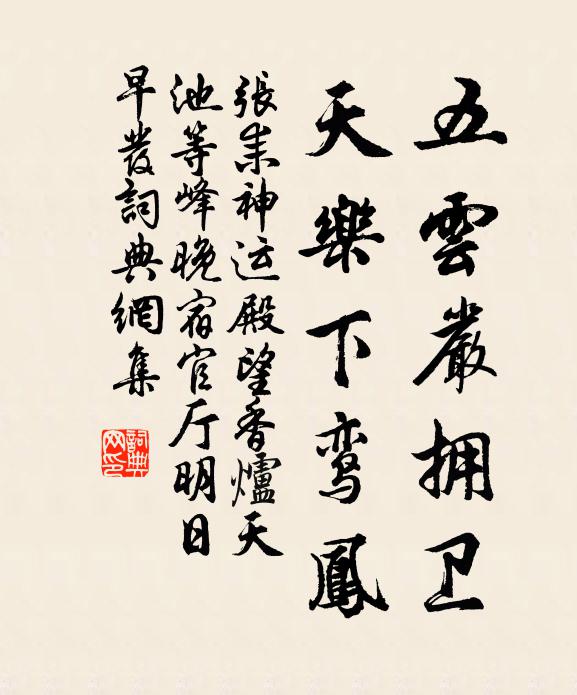 五雲嚴拥卫
天樂下鸾鳳
張耒神运殿望香爐天
池等峰晚宿官厅明日
早發詞典網集
詞典
网印